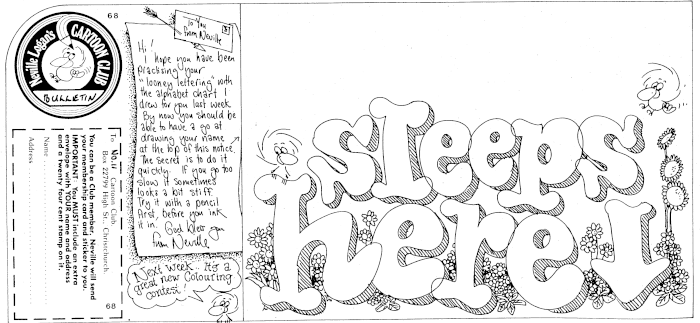 68
Neville Logan's
CARTOON CLUB
BULLETIN
To You
from Neville
Hi!
I hope you have been
practising your
"looney lettering" with
the alphabet chart I
drew for you last week
By now you should be
able to have a go at
drawing your name
at the top of this notice.
The secret is to do it
quickly. If you go too
slow it sometimes
looks a bit stiff.
Try it with a pencil
first, before you ink
it in. God bless you
from Neville
Next week - It's a
great new Colouring
contest!
To Cartoon Club
Box 22799 High St. Christchurch.
You can be a Club member. Neville will send
your membership card and sticker to you.
IMPORTANT - You MUST include an extra
envelope with YOUR name and address
and a twenty four cent stamp on it
Name
Address
68
sleeps
here